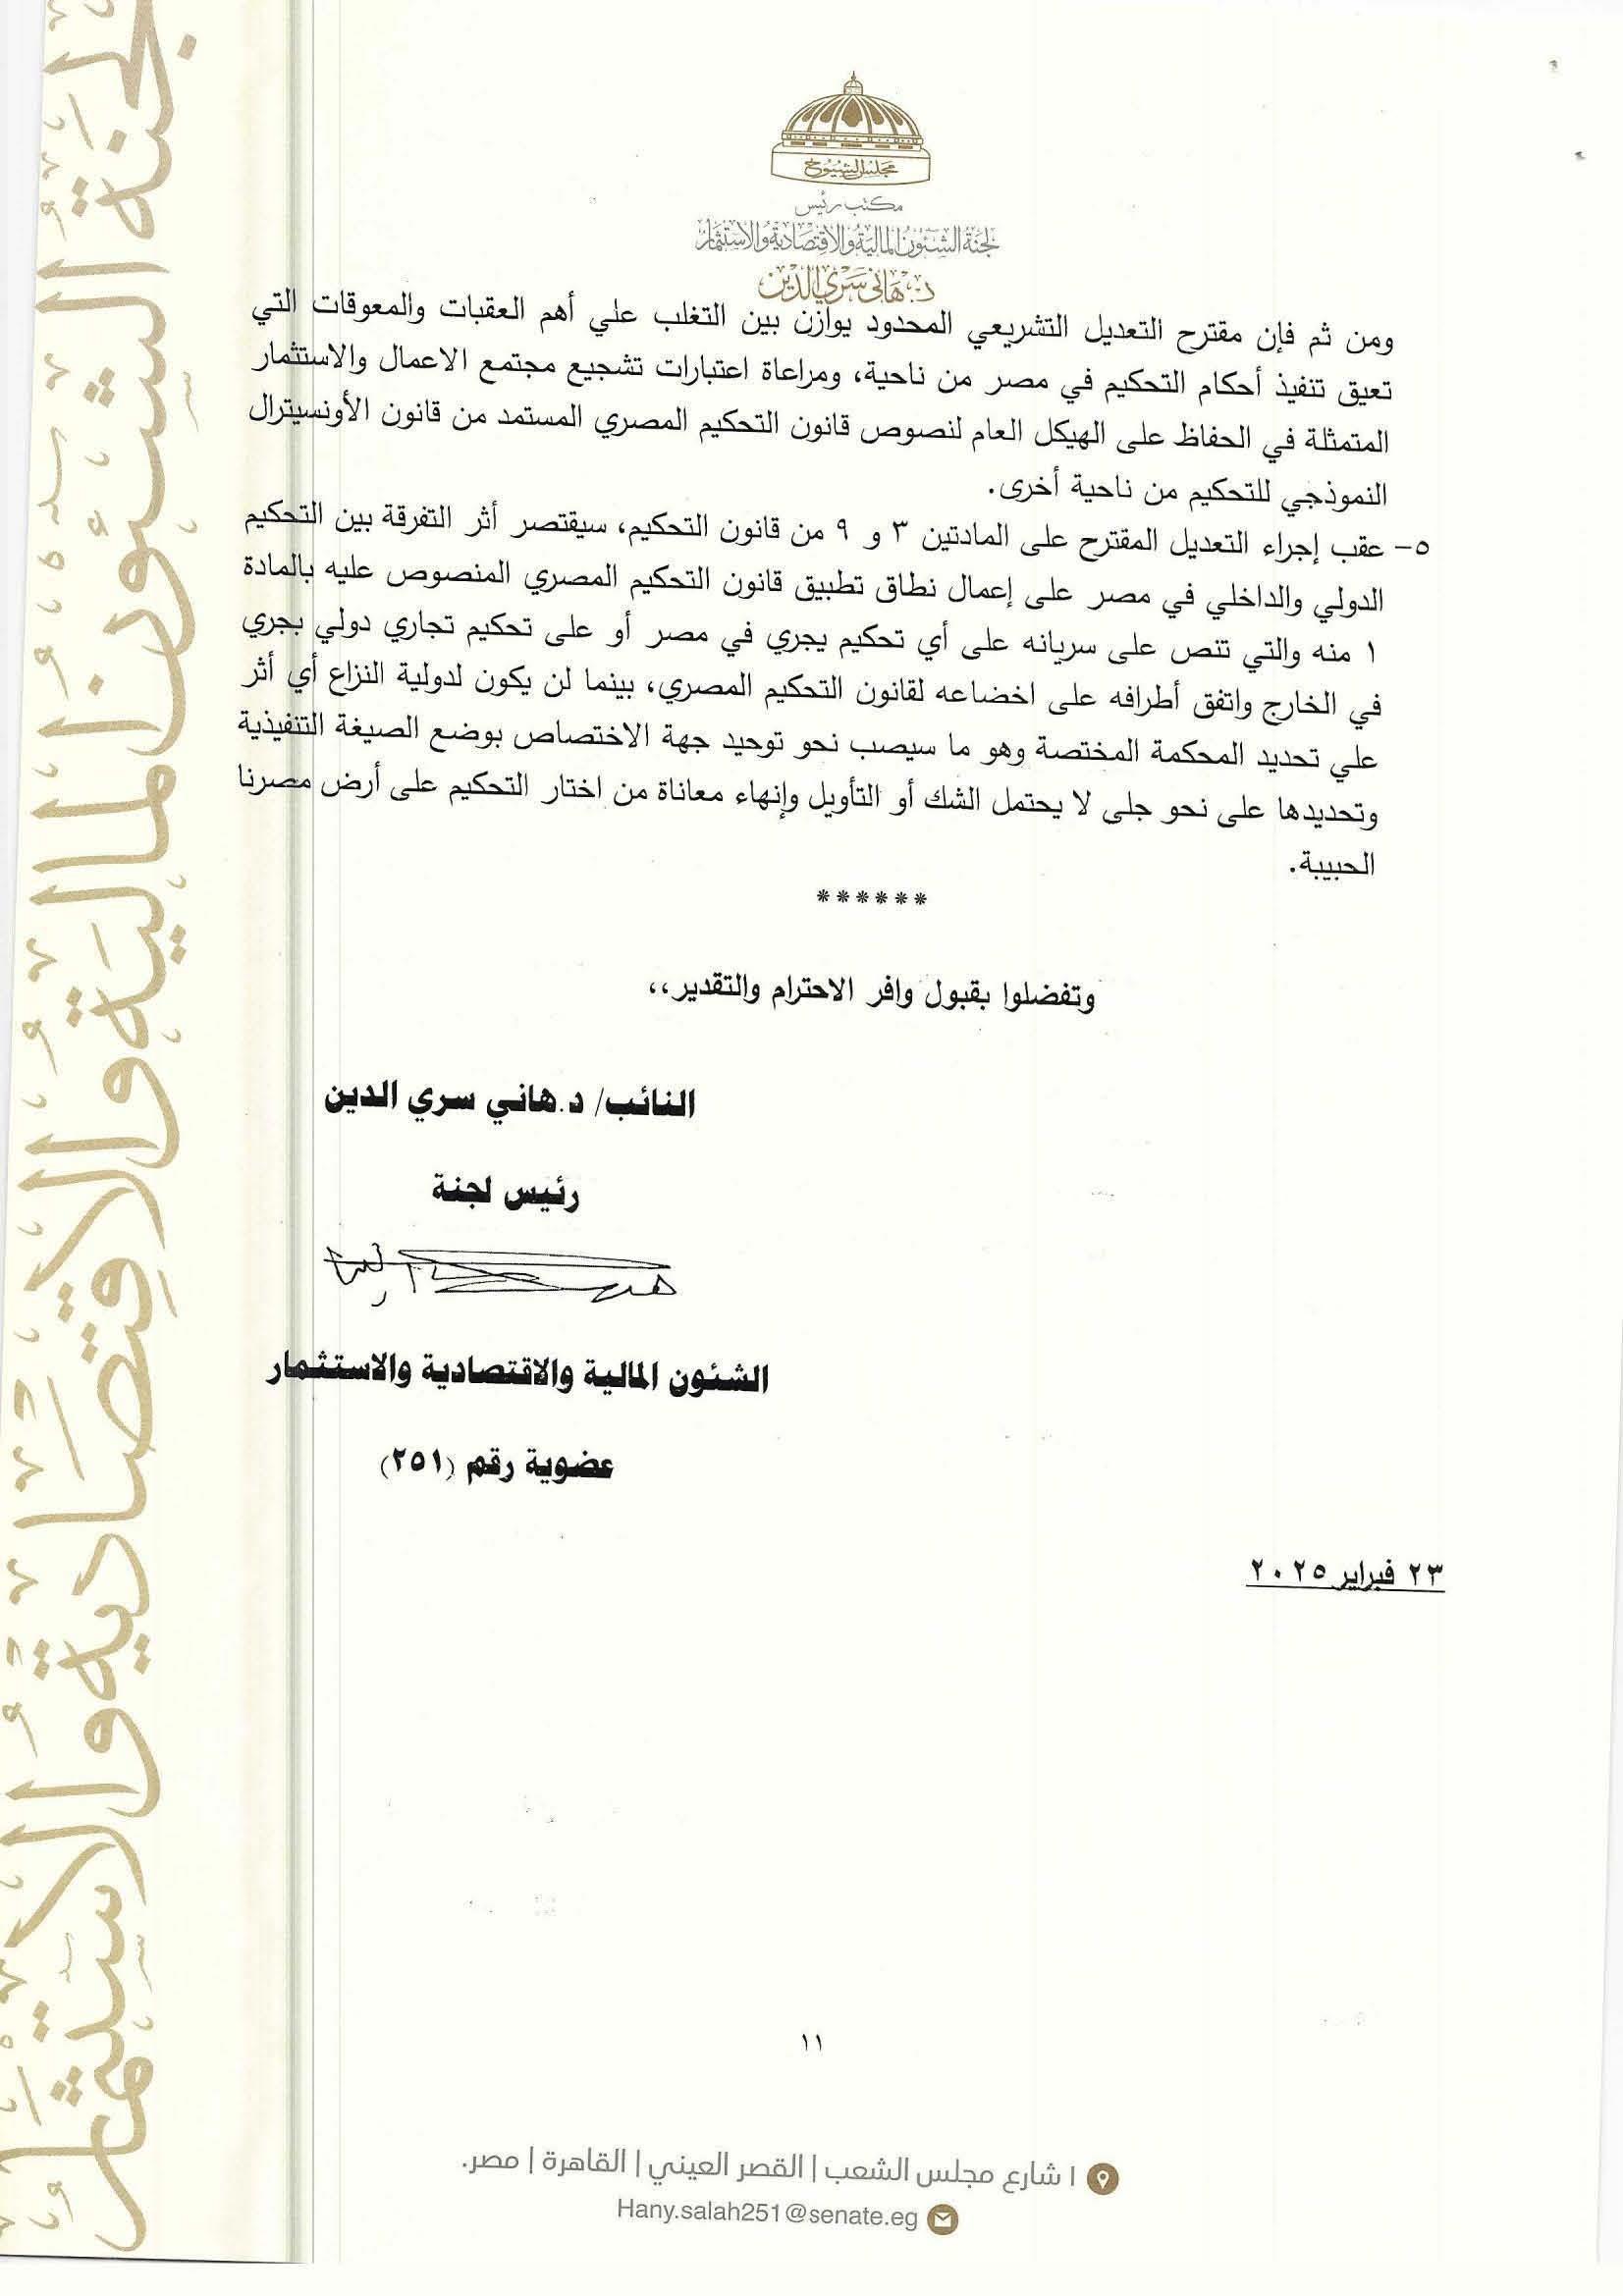 مجلس الشيوخ
مكتب رئيس
لجنة الشئون المالية والاقتصادية والاستثمار
د. هاني سري الدين
ومن ثم فإن مقترح التعديل التشريعي المحدود يوازن بين التغلب علي أهم العقبات والمعوقات التي
تعيق تنفيذ أحكام التحكيم في مصر من ناحية، ومراعاة اعتبارات تشجيع مجتمع الاعمال والاستثمار
المتمثلة في الحفاظ على الهيكل العام لنصوص قانون التحكيم المصري المستمد من قانون الأونسيترال
النموذجي للتحكيم من ناحية أخرى.
٥- عقب إجراء التعديل المقترح على المادتين ٣ و ٩ من قانون التحكيم، سيقتصر أثر التفرقة بين التحكيم
الدولي والداخلي في مصر على إعمال نطاق تطبيق قانون التحكيم المصري المنصوص عليه بالمادة
١ منه والتي تنص على سريانه على أي تحكيم يجري في مصر أو على تحكيم تجاري دولي بجري
في الخارج واتفق أطرافه على اخضاعه لقانون التحكيم المصري، بينما لن يكون لدولية النزاع أي أثر
علي تحديد المحكمة المختصة وهو ما سيصب نحو توحيد جهة الاختصاص بوضع الصيغة التنفيذية
وتحديدها على نحو جلى لا يحتمل الشك أو التأويل وإنهاء معاناة من اختار التحكيم على أرض مصرنا
الحبيبة.
******
وتفضلوا بقبول وافر الاحترام والتقدير،،
النائب/ د.هاني سري الدين
رئيس لجنة
الشئون المالية والاقتصادية والاستثمار
عضوية رقم (٢٥١)
٢٣ فبراير ٢٠٢٥
١١
١ شارع مجلس الشعب | القصر العيني | القاهرة | مصر.
Hany.salah251@senate.eg
لجنة الشئون المالية والاقتصادية والاستثمار